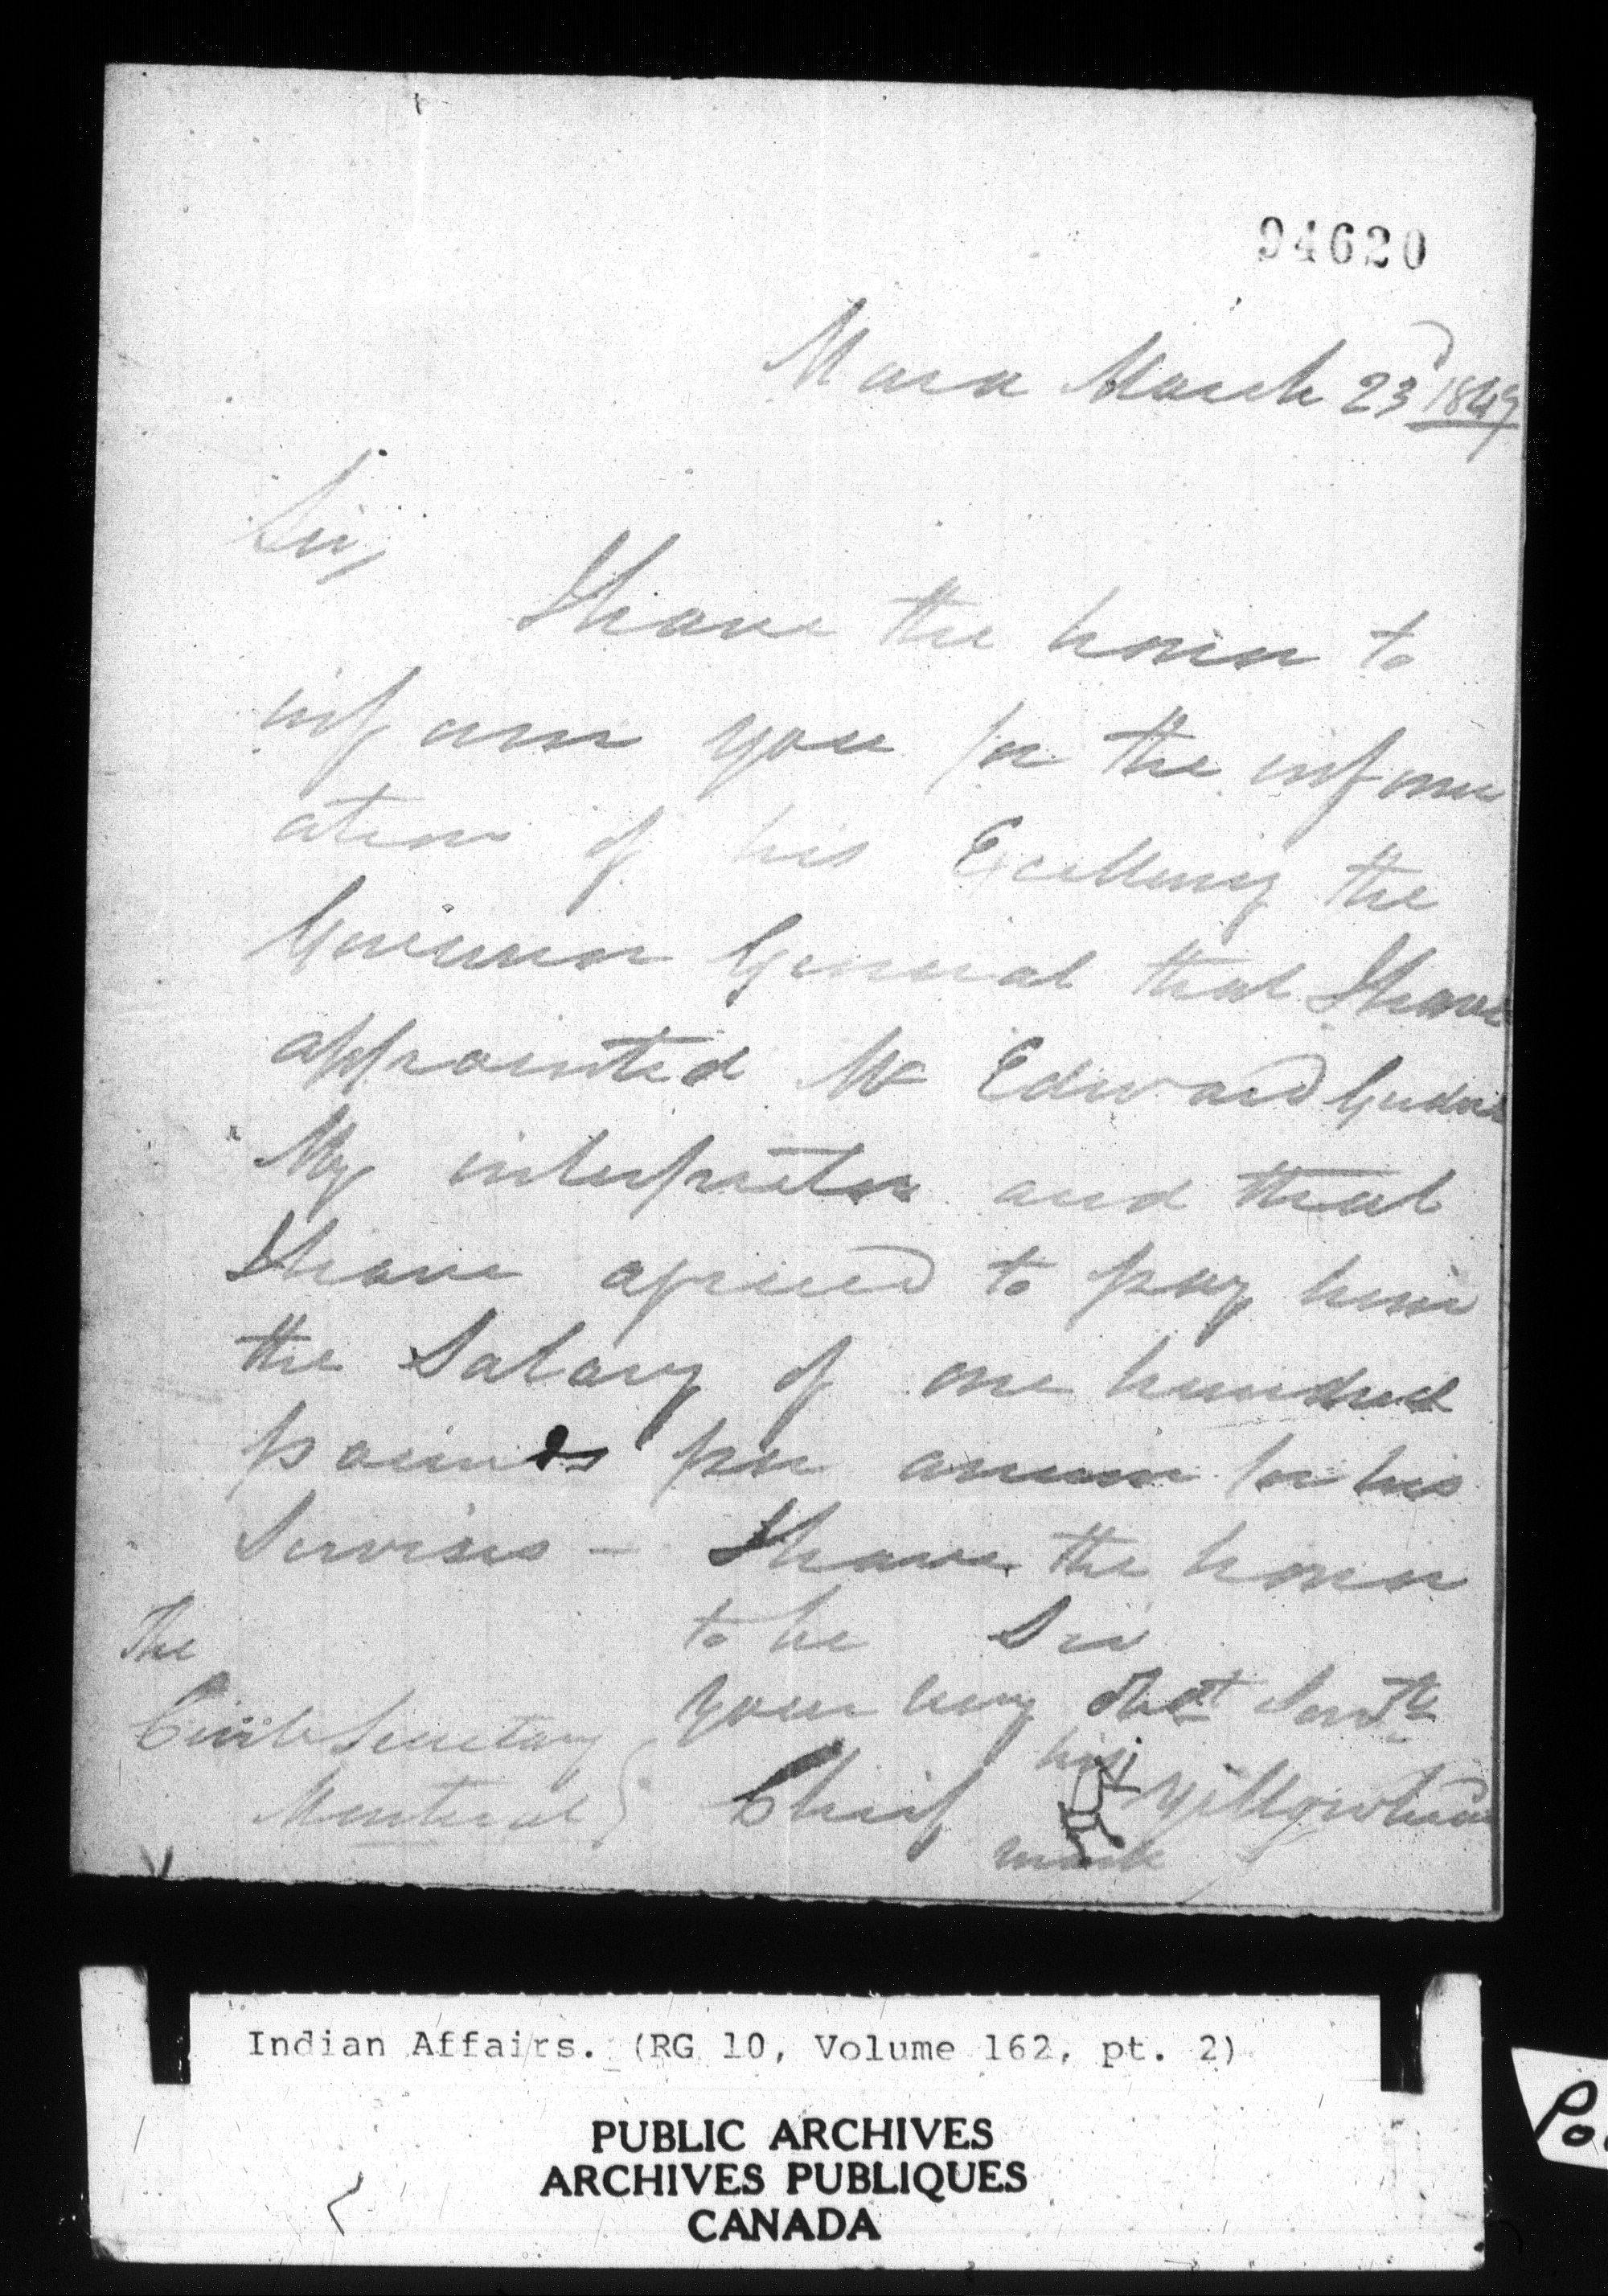 94620
Mara March 23d 1849
Sir,
I have the honor to
inform you for the inform
ation of his Excellency the
Governor General that I have
appointed Mr Edward
My interpreter and that
I have agreed to pay him
the Salary of one hundred
pounds per annum for his
Servises - I have the honor
to be Sir
The
your very Obdt Servt
Civil Secretary
Montreal
his
Chief Yellowhead
mark
Indian Affairs. (RG 10, Volume 162, pt. 2)
PUBLIC ARCHIVES
ARCHIVES PUBLIQUES
CANADA